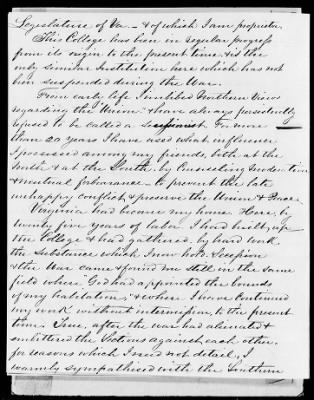 Legislature of Va — & of which I am proprietor.
This College has been in regular progress
from its origin to the present time & is the
only similar Institution here which has not
been suspended during the War.
From early life I imbibed Northern Views
regarding the Union & have always persistently
refused to be called a Secessionist. For more
than 20 years I have used what influence
I possessed among my friends, both at the
North & at the South, by counselling moderation
& mutual forbearance — to prevent the late
unhappy conflict, & preserve the Union & Peace.
Virginia had become my home. Here, by
twenty five years of labor, I had built up
the College & had gathered, by hard work,
the substance which I now hold. Secession
& the War came & found me still in the same
field where "God had appointed the bounds
of my habitation," & where I have continued
my work without intermission to the present
time. True, after the war had alienated &
embittered the Sections against each other,
for reasons which I need not detail, I
warmly sympathised with the Southern